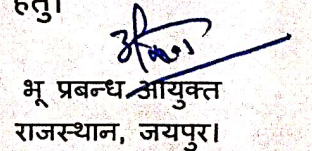 हेतु।
भू प्रबन्ध आयुक्त
राजस्थान, जयपुर।